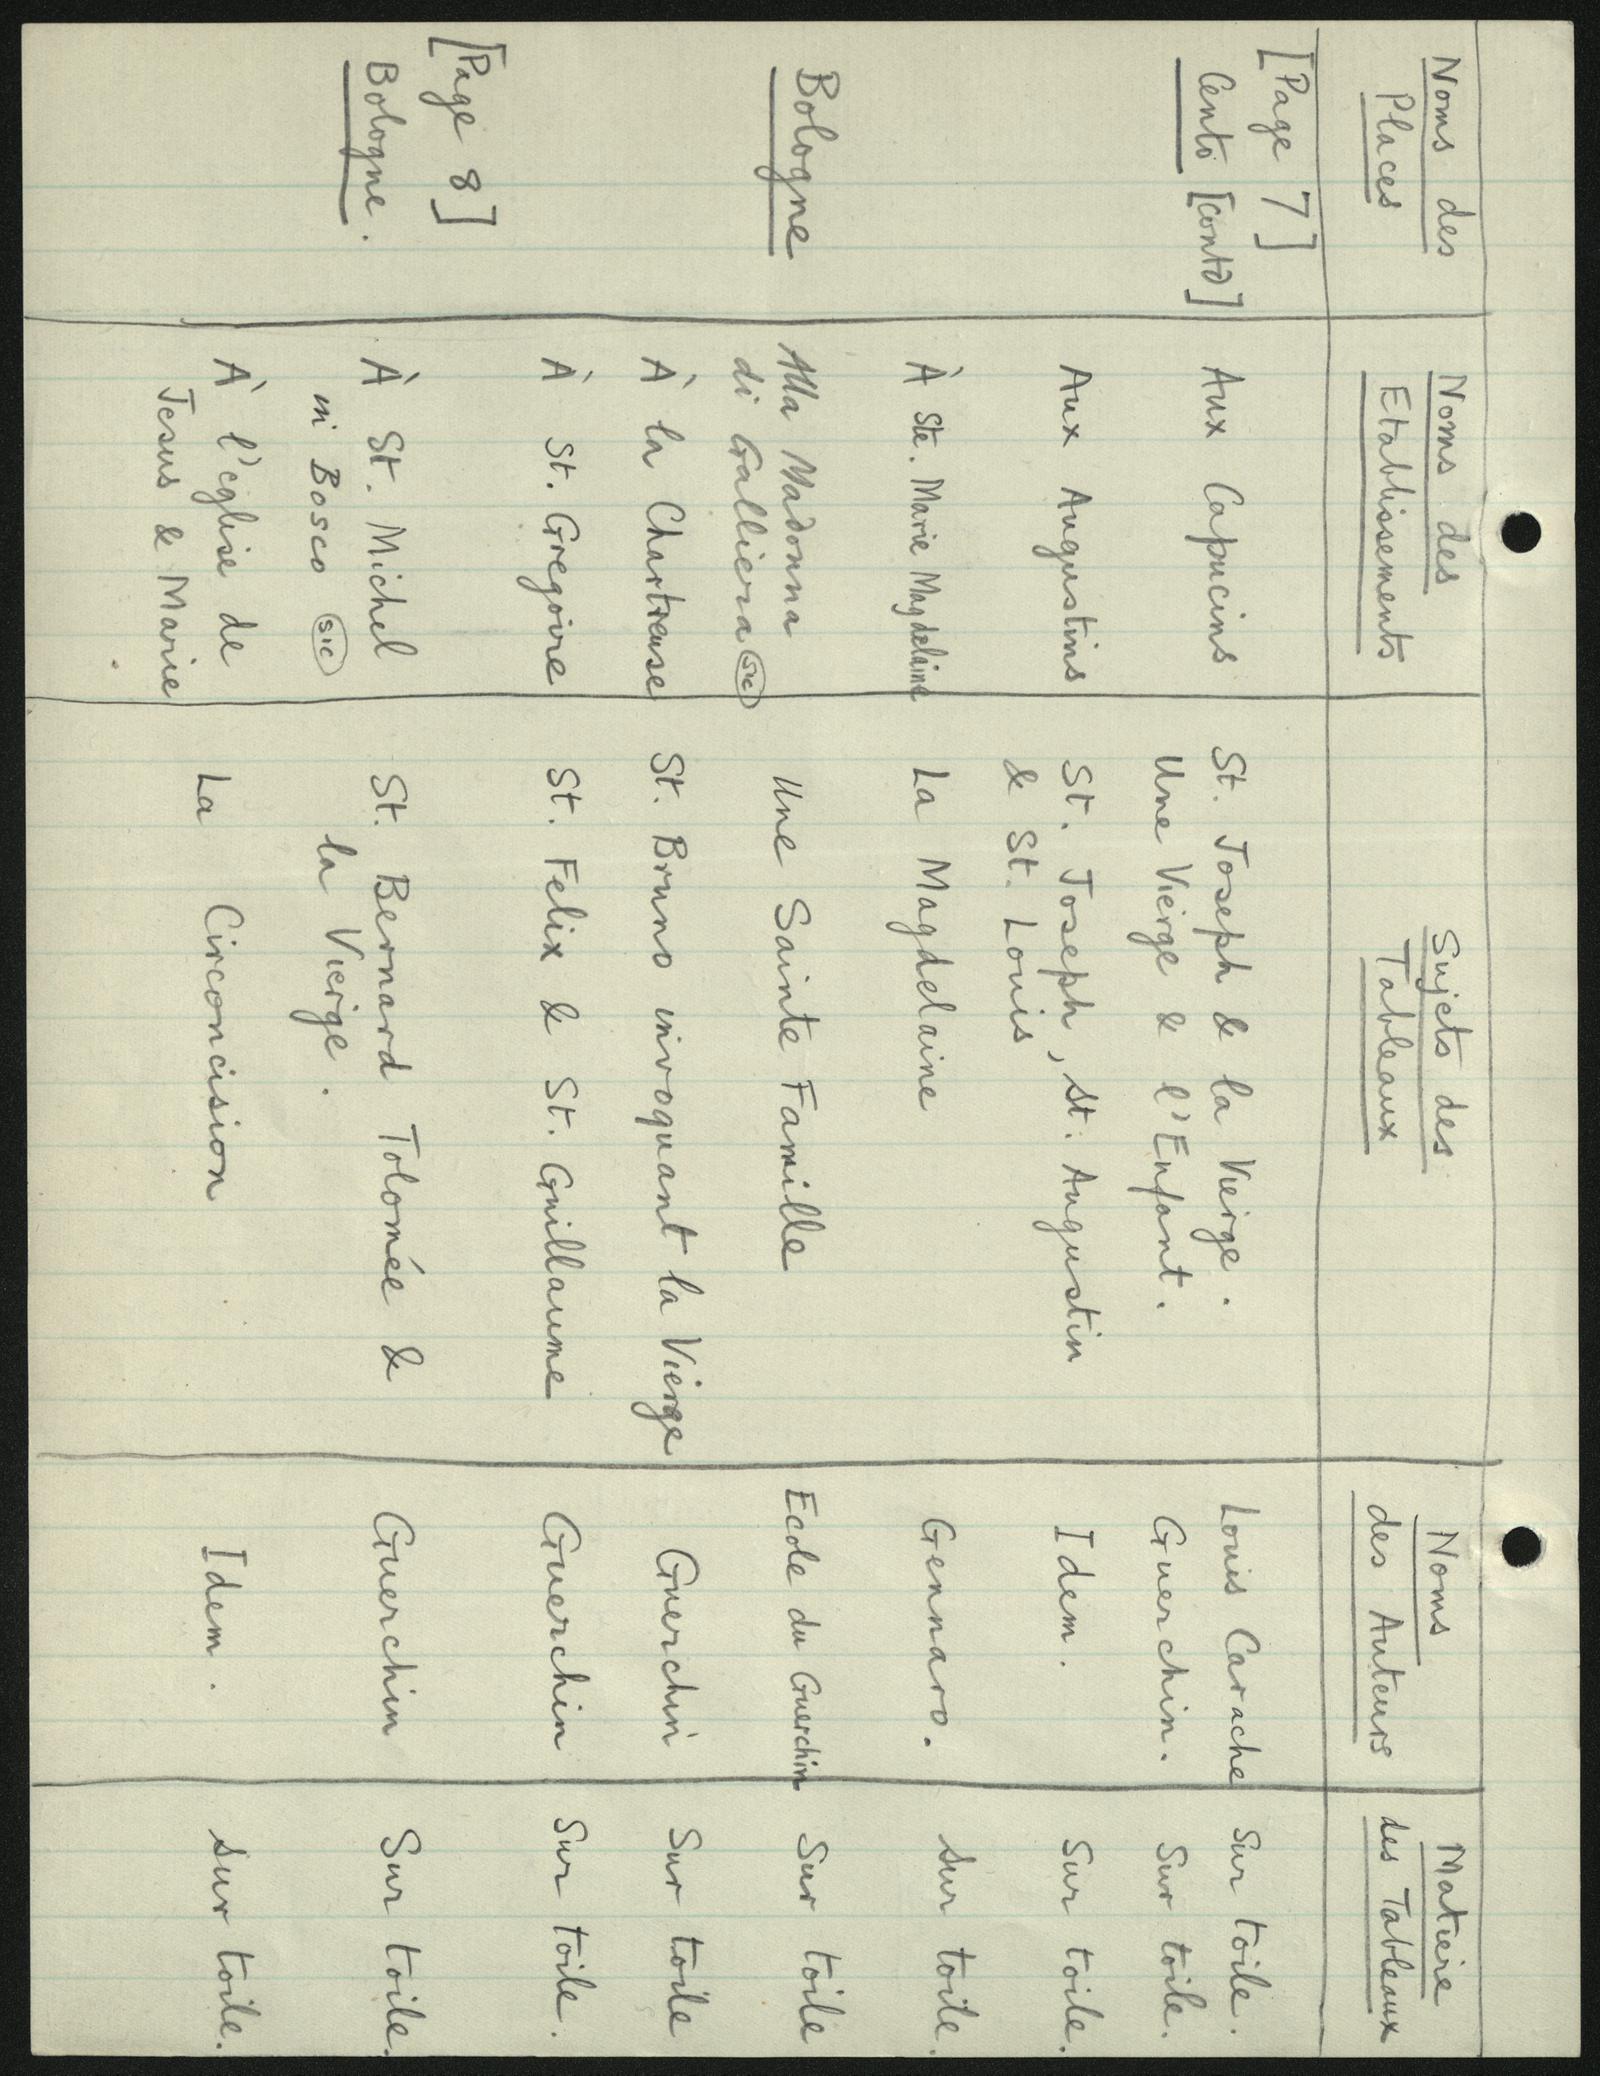 Noms des Places | Noms des Etablissements | Sujets des Tableaux | Noms des Auteurs | Matiere des Tableaux
[Page 7]
Cento [contd] | Aux Capucins | St. Joseph & la Vierge. | Louis Carache | Sur toile.
Une Vierge & l'Enfant. | Guerchin. | Sur toile.
Aux Augustins | St. Joseph, St. Augustin | Idem. | Sur toile.
& St. Louis
À Ste. Marie Magdelaine | La Magdelaine | Gennaro. | Sur toile.
Bologne | Alla Madonna | Une Sainte Famille | Ecole du Guerchin | Sur toile
di Galliera (sic)
À la Chartreuse | St. Bruno invoquant la Vierge | Guerchin | Sur toile
À St. Gregoire | St. Felix & St. Guillaume | Guerchin | Sur toile.
[Page 8]
Bologne. | À St. Michel | St. Bernard Tolomée & | Guerchin | Sur toile.
in Bosco (sic) | la Vierge.
À l'eglise de | La Circoncision | Idem. | Sur toile.
Jesus & Marie